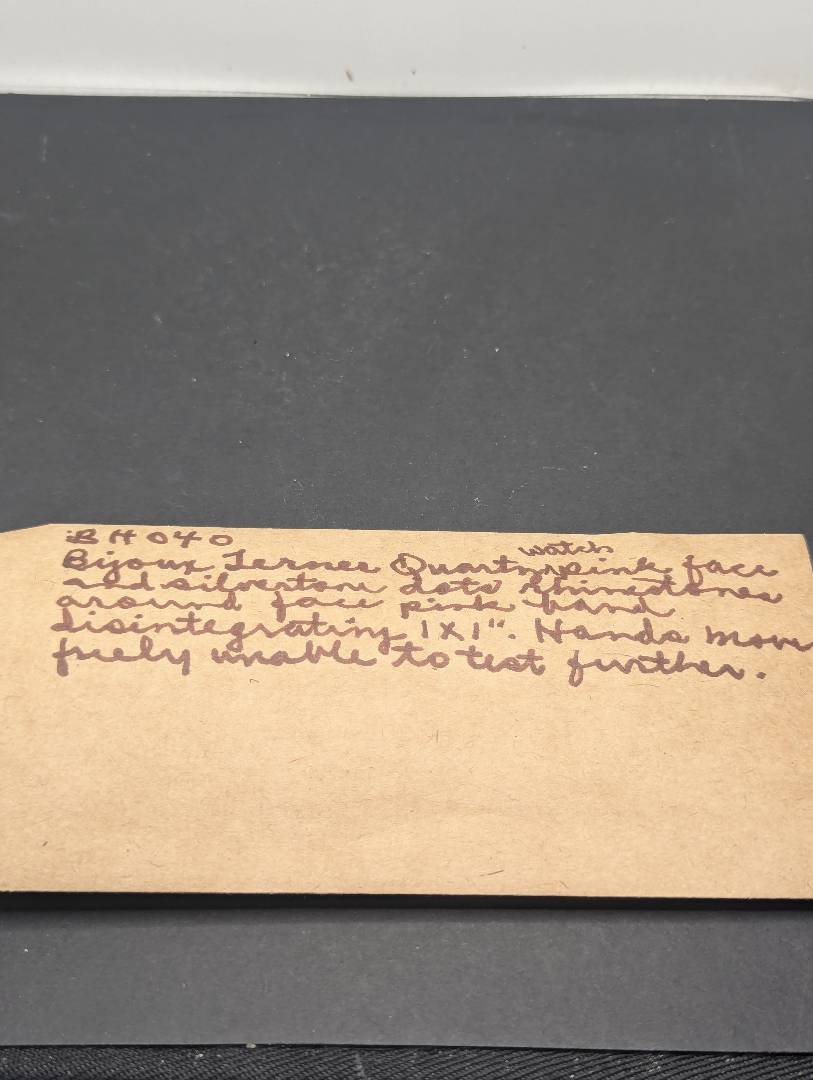 BH 040
Bijoux Terner Quartz watch pink face
and silvertone dots rhinestones
around face pink band
disintegrating 1x1". Hands move
freely unable to test further.